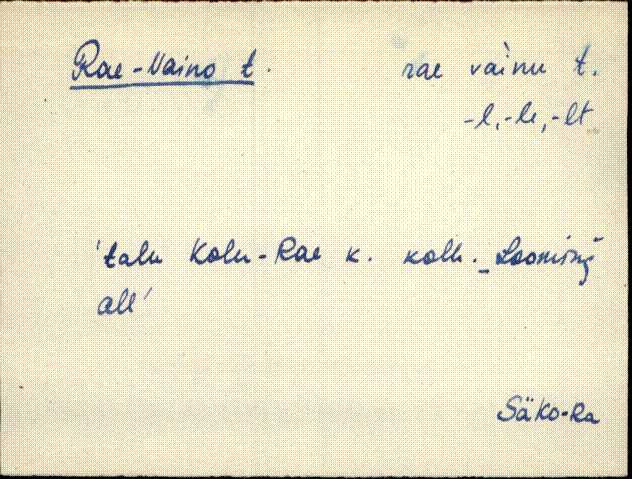 Rae-Vaino t. rae vàinu t.
-l, -le, -lt
'talu Kolu-Rae k. kolh. „Looming"
all'
SäKo-Ra